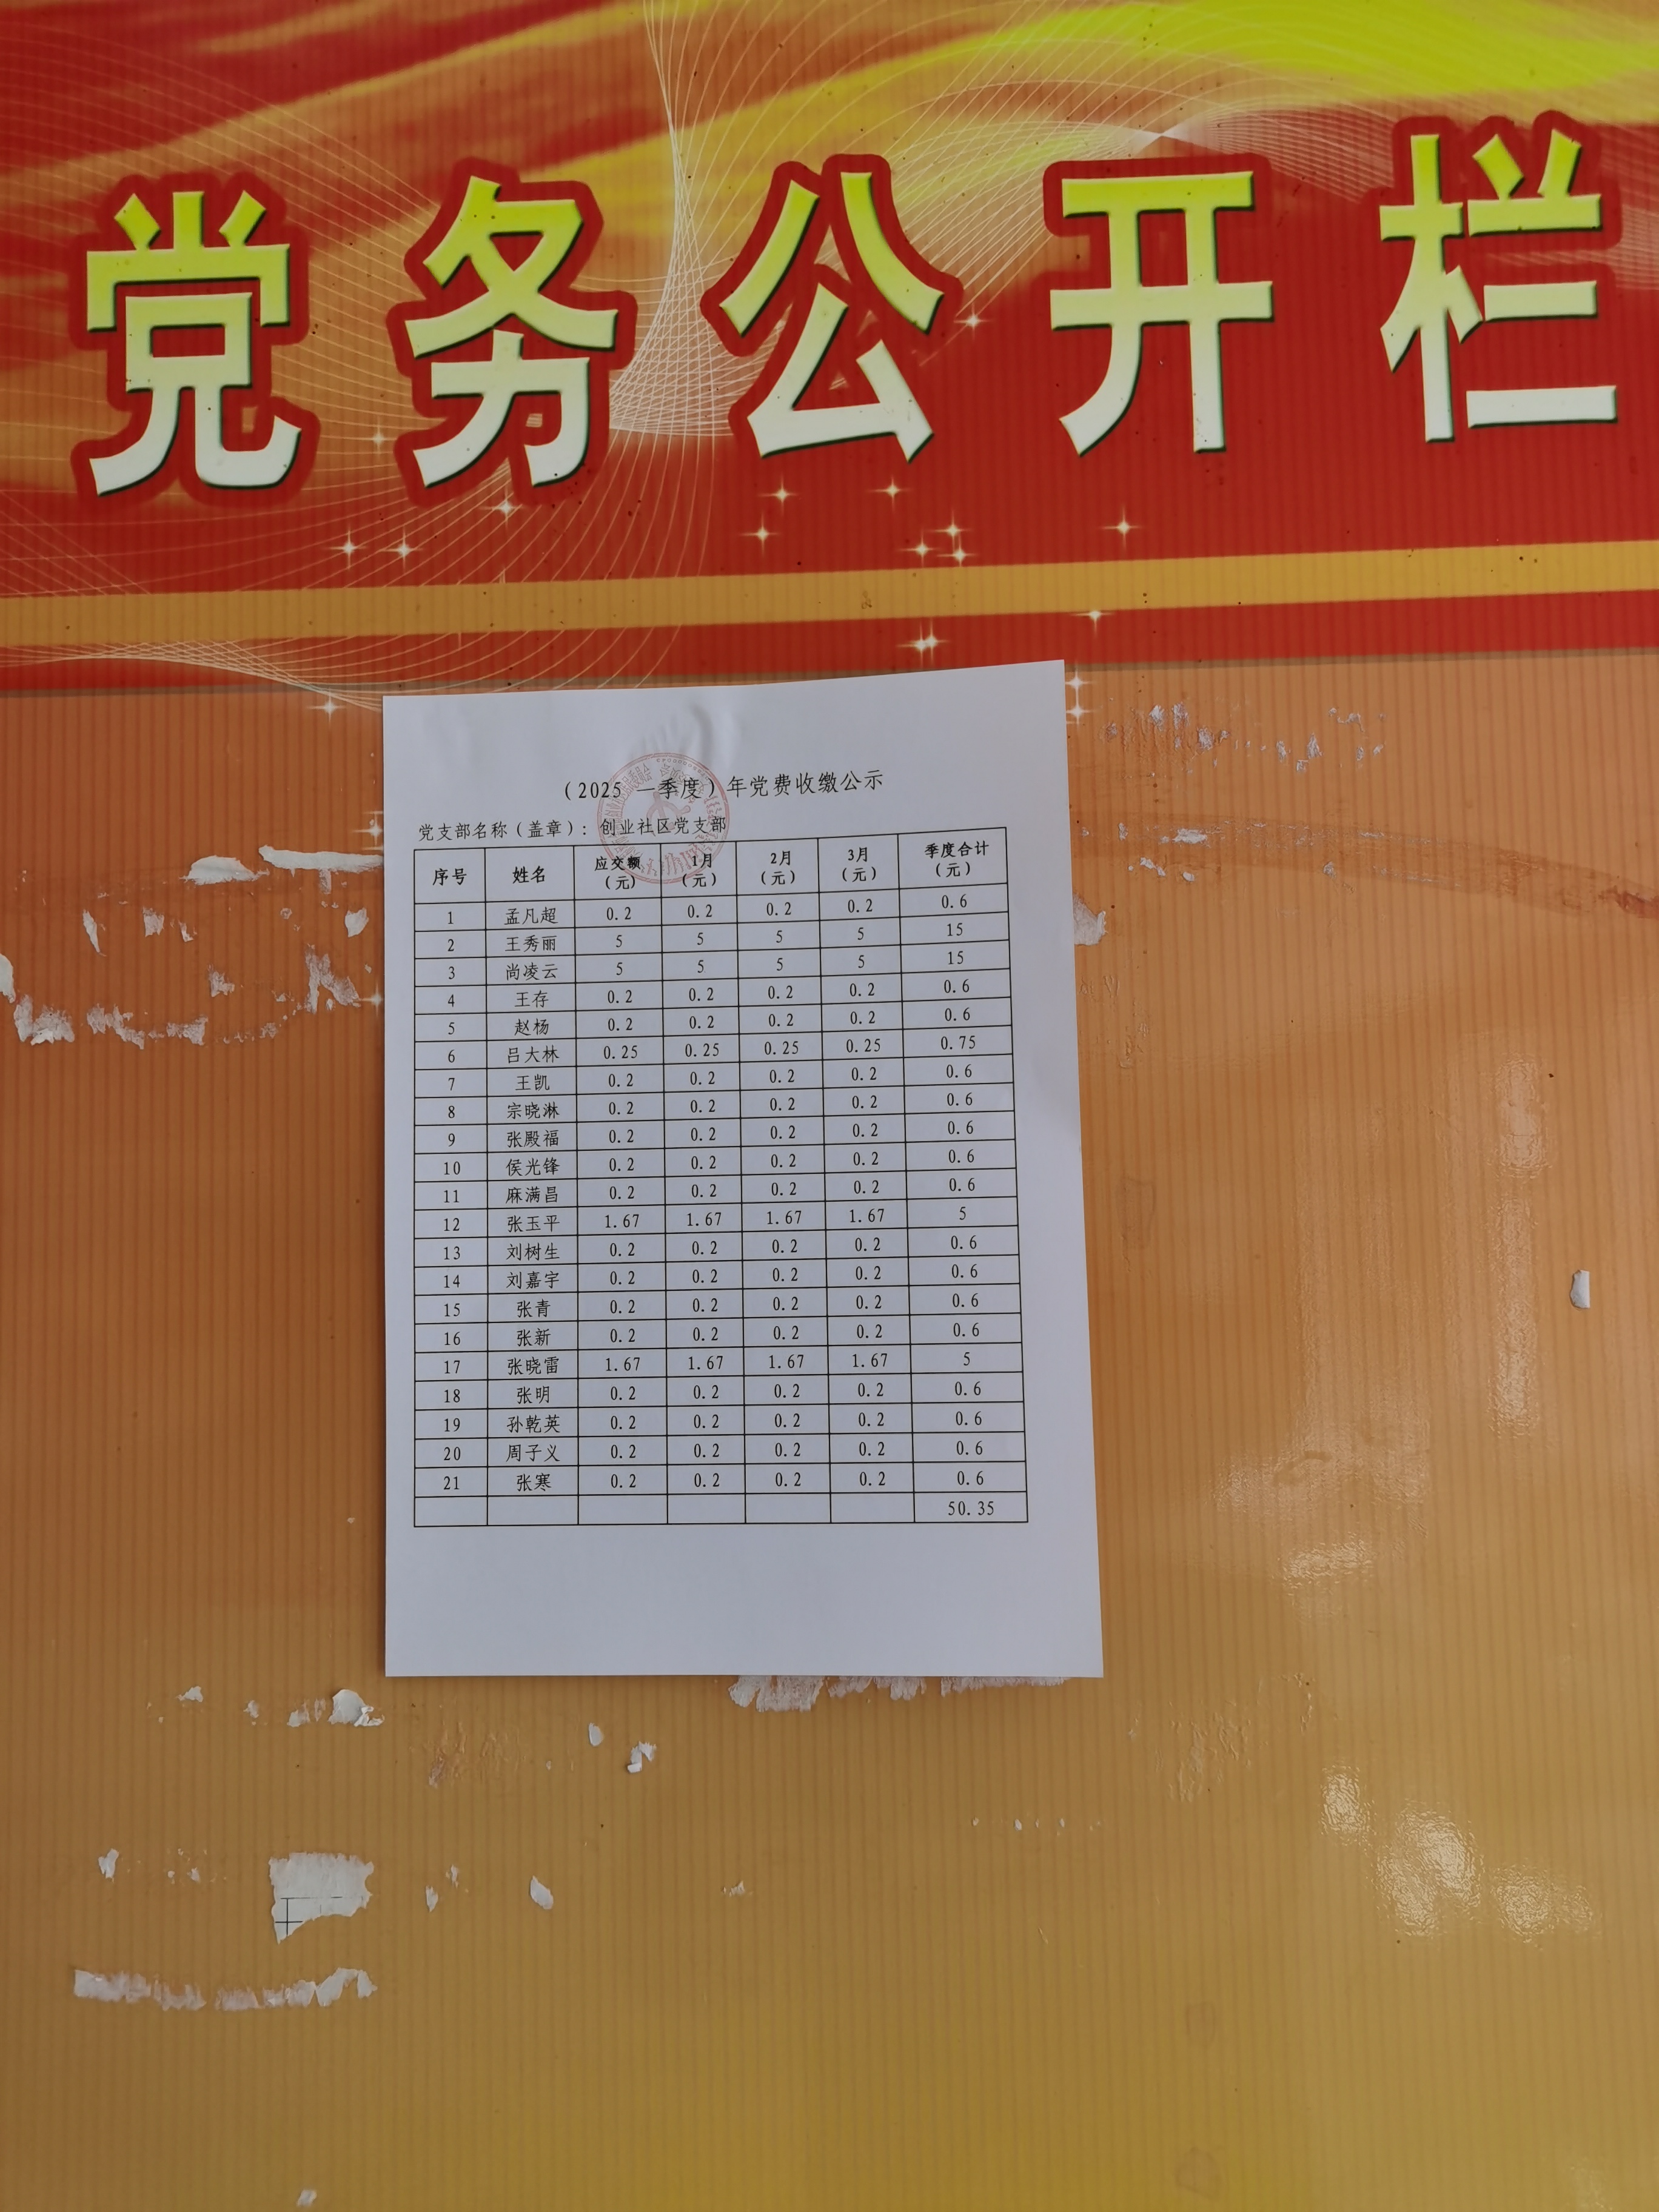 党务公开栏
（2025 一季度）年党费收缴公示
党支部名称（盖章）：创业社区党支部
序号 姓名 应交额（元） 1月（元） 2月（元） 3月（元） 季度合计（元）
1 孟凡超 0.2 0.2 0.2 0.2 0.6
2 王秀丽 5 5 5 5 15
3 尚凌云 5 5 5 5 15
4 王存 0.2 0.2 0.2 0.2 0.6
5 赵杨 0.2 0.2 0.2 0.2 0.6
6 吕大林 0.25 0.25 0.25 0.25 0.75
7 王凯 0.2 0.2 0.2 0.2 0.6
8 宗晓淋 0.2 0.2 0.2 0.2 0.6
9 张殿福 0.2 0.2 0.2 0.2 0.6
10 侯光锋 0.2 0.2 0.2 0.2 0.6
11 麻满昌 0.2 0.2 0.2 0.2 0.6
12 张玉平 1.67 1.67 1.67 1.67 5
13 刘树生 0.2 0.2 0.2 0.2 0.6
14 刘嘉宇 0.2 0.2 0.2 0.2 0.6
15 张青 0.2 0.2 0.2 0.2 0.6
16 张新 0.2 0.2 0.2 0.2 0.6
17 张晓雷 1.67 1.67 1.67 1.67 5
18 张明 0.2 0.2 0.2 0.2 0.6
19 孙乾英 0.2 0.2 0.2 0.2 0.6
20 周子义 0.2 0.2 0.2 0.2 0.6
21 张寒 0.2 0.2 0.2 0.2 0.6
50.35